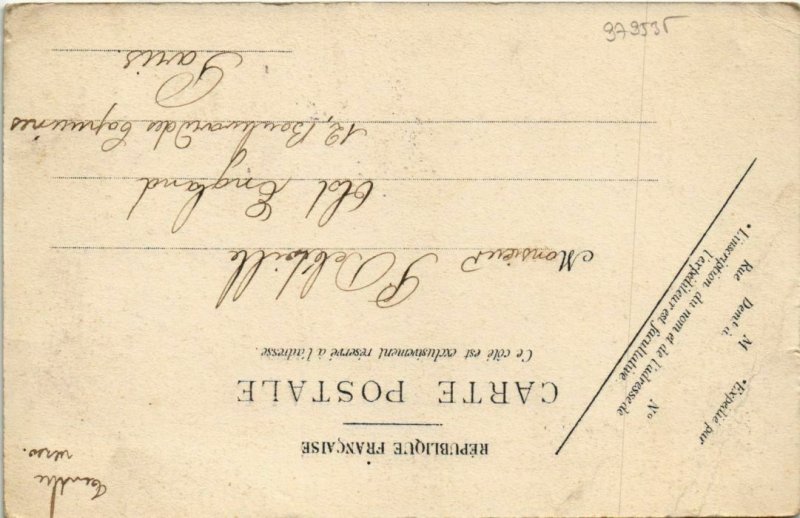 RÉPUBLIQUE FRANÇAISE
CARTE POSTALE
Ce côté est exclusivement réservé à l'adresse.
•Expédié par
M
Demt à
Rue
N°
•L'inscription du nom et de l'adresse de
l'expéditeur est facultative
Monsieur P Deldville
Old England
12, Boulevard des Capucines
Paris.
verso.
979535